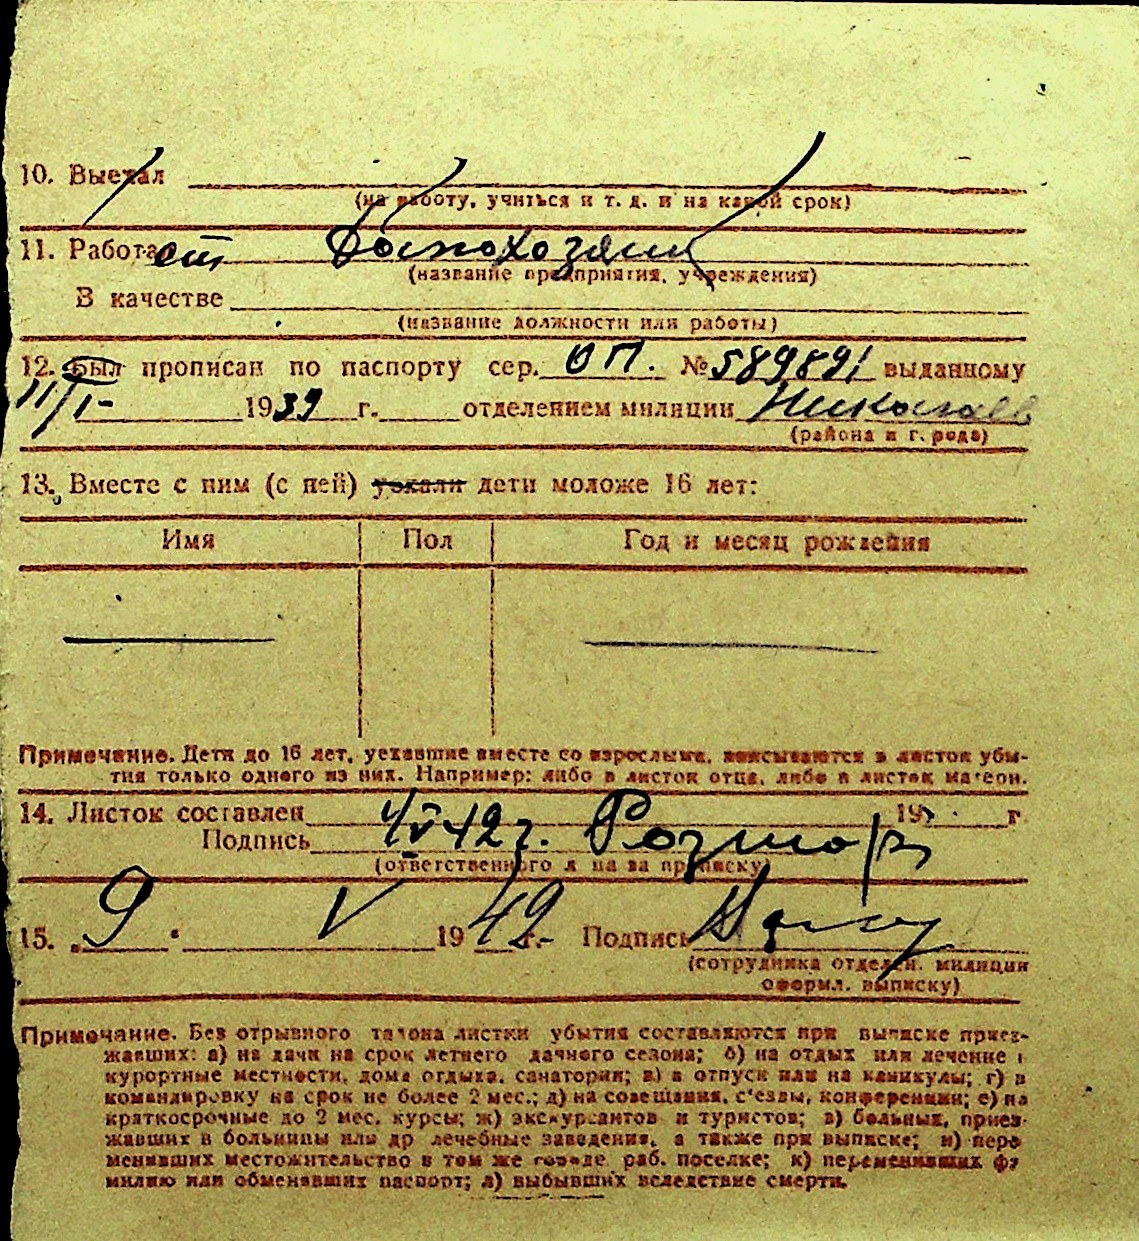 10. Выехал
(на работу, учиться и т. д. и на какой срок)
11. Работает домохозяйк
(название предприятия, учреждения)
В качестве
(название должности или работы)
12. Был прописан по паспорту сер. ОП. № 589891 выданному
11/I- 1939 г. отделением милиции Николаев
(района и города)
13. Вместе с ним (с ней) уехали дети моложе 16 лет:
Имя Пол Год и месяц рождения
Примечание. Дети до 16 лет, уехавшие вместе со взрослыми, вписываются в листок убы-
тия только одного из них. Например: либо в листок отца, либо в листок матери.
14. Листок составлен 4/V-42 г. 19 г
Подпись
(ответственного лица за прописку)
15. 9 V 1942 г. Подпись
(сотрудника отделен. милиции
оформл. выписку)
Примечание. Без отрывного талона листки убытия составляются при выписке приез-
жавших: а) на дачи на срок летнего дачного сезона; б) на отдых или лечение в
курортные местности, дома отдыха, санатории; в) в отпуск или на каникулы; г) в
командировку на срок не более 2 мес.; д) на совещания, с'езды, конференции; е) на
краткосрочные до 2 мес. курсы; ж) экскурсантов и туристов; з) больных, приез-
жавших в больницы или др лечебные заведения, а также при выписке; и) пере
менивших местожительство в том же городе, раб. поселке; к) переменивших фа
милию или обменявших паспорт; л) выбывших вследствие смерти.